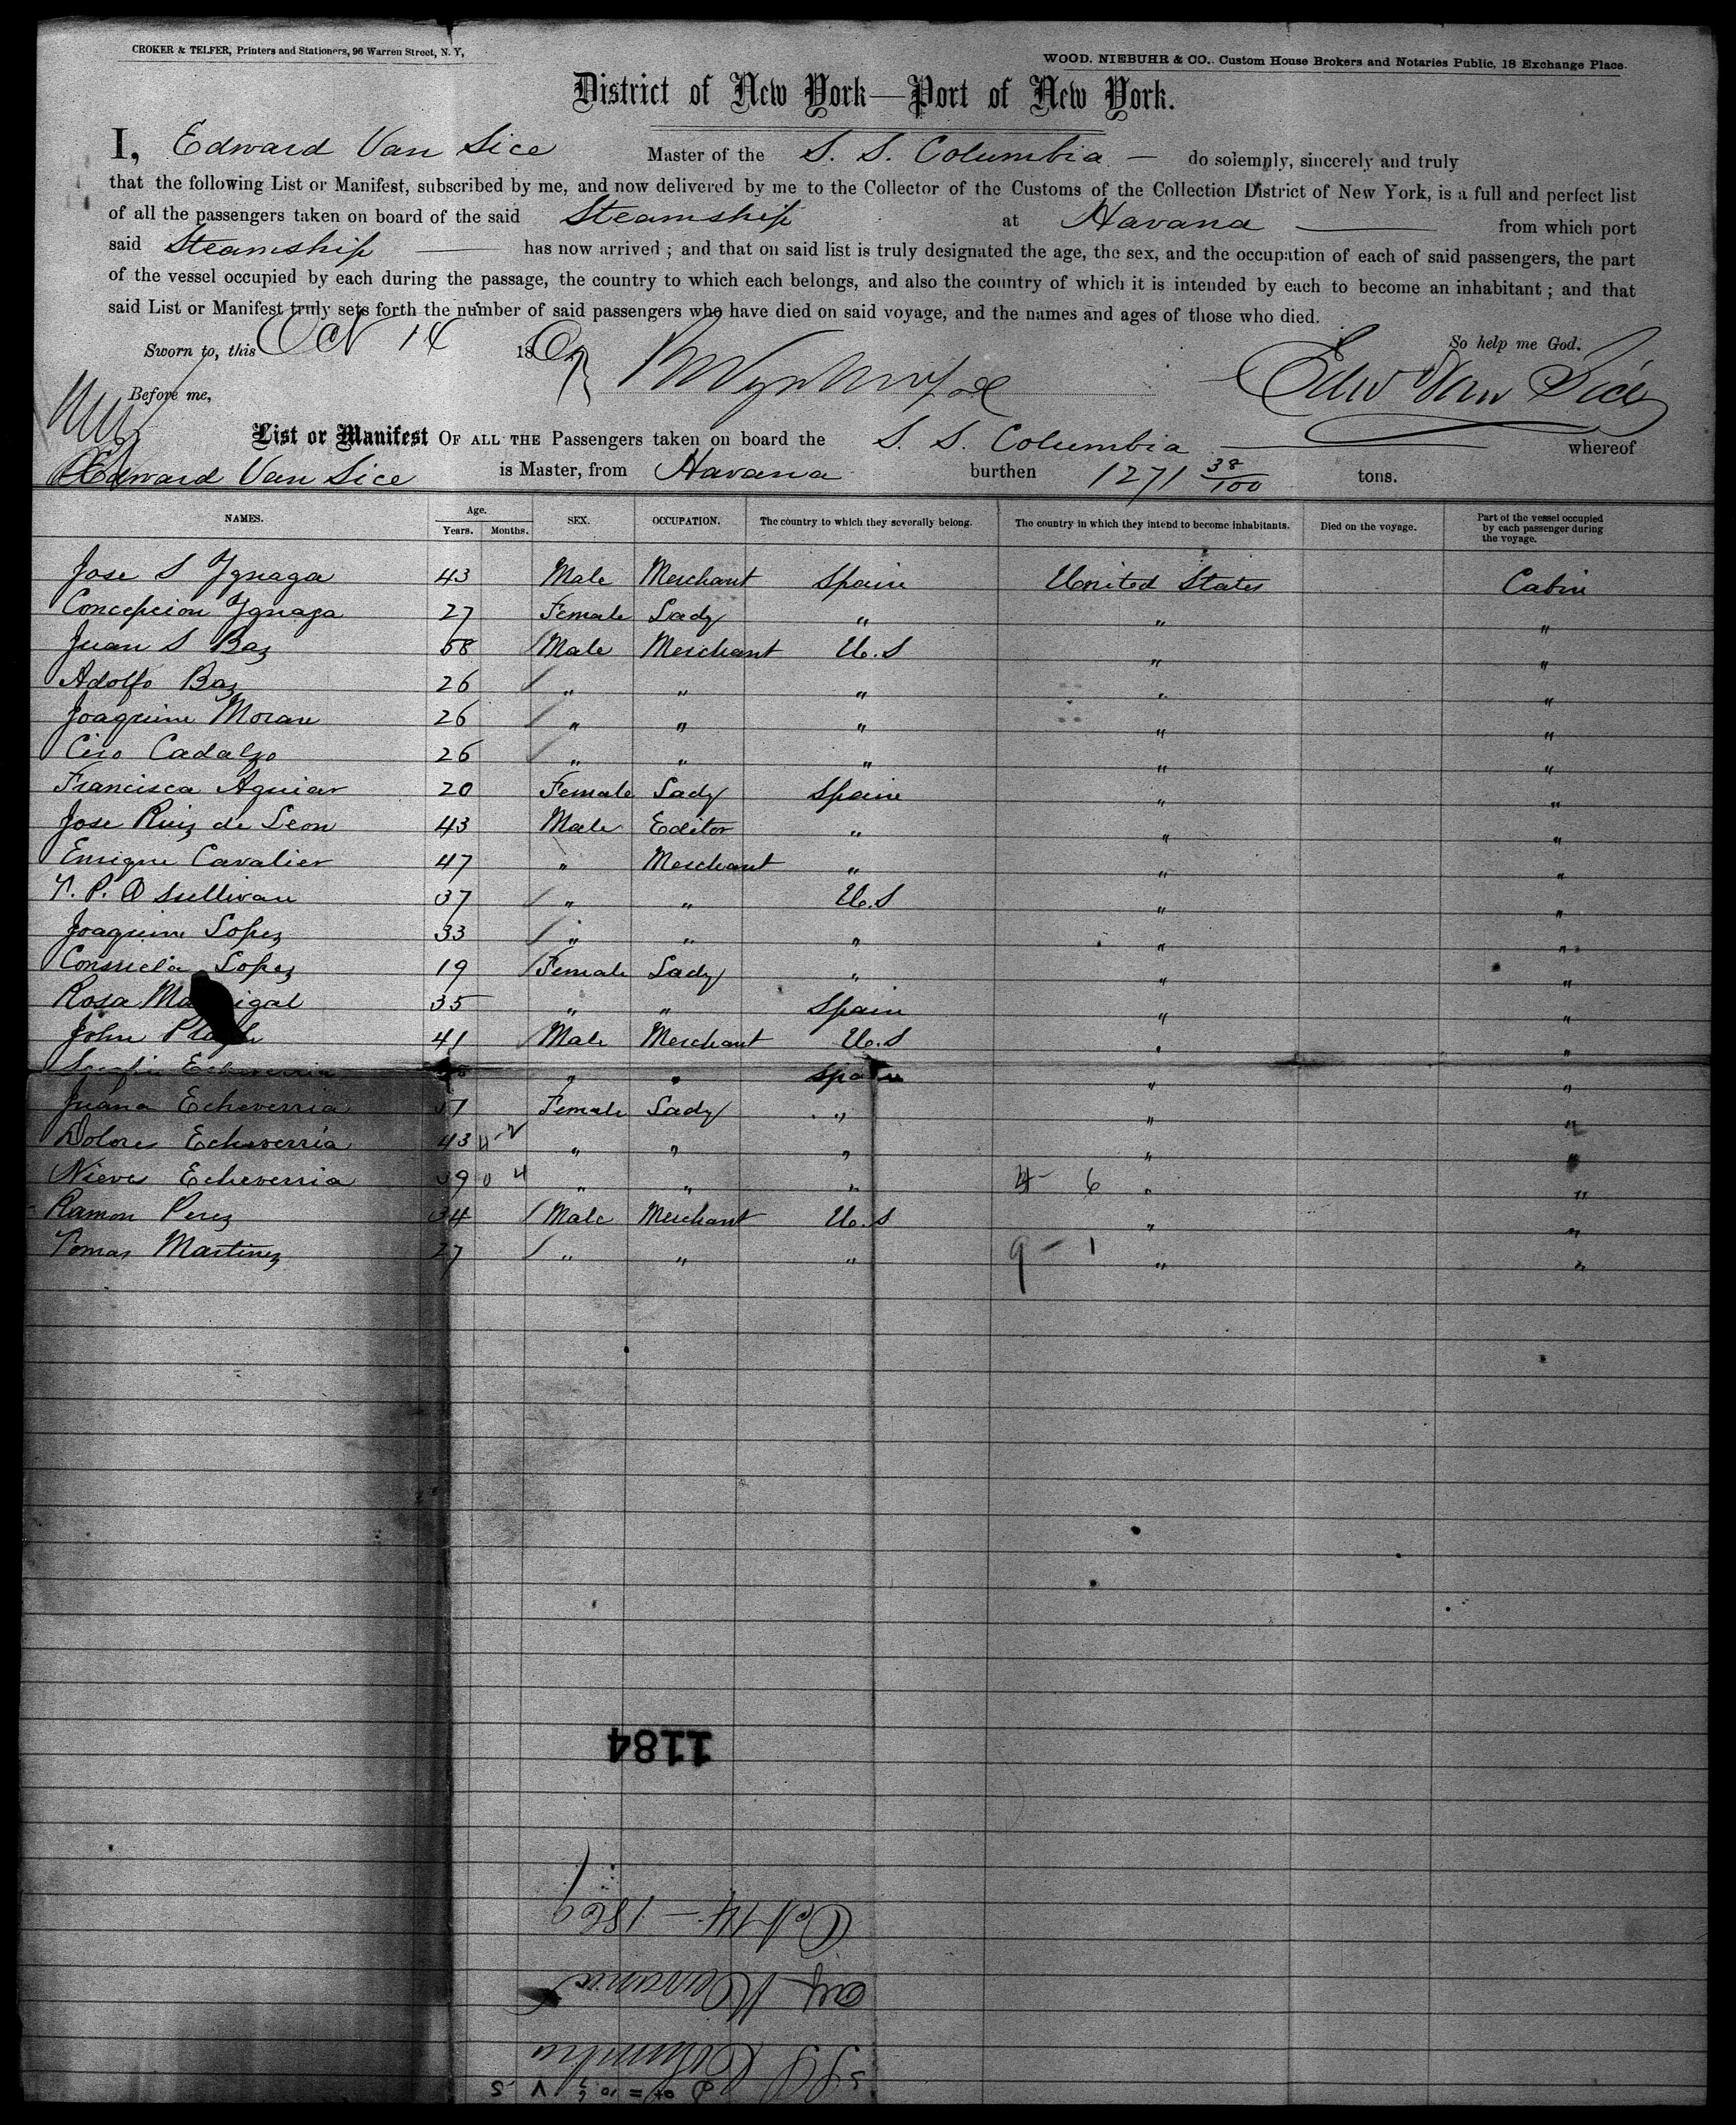 CROKER & TELFER, Printers and Stationers, 96 Warren Street, N. Y.
WOOD, NIEBUHR & CO., Custom House Brokers and Notaries Public, 18 Exchange Place.
District of New York—Port of New York.
I, Edward Van Sice Master of the S. S. Columbia — do solemnly, sincerely and truly
that the following List or Manifest, subscribed by me, and now delivered by me to the Collector of the Customs of the Collection District of New York, is a full and perfect list
of all the passengers taken on board of the said Steamship at Havana from which port
said Steamship has now arrived ; and that on said list is truly designated the age, the sex, and the occupation of each of said passengers, the part
of the vessel occupied by each during the passage, the country to which each belongs, and also the country of which it is intended by each to become an inhabitant ; and that
said List or Manifest truly sets forth the number of said passengers who have died on said voyage, and the names and ages of those who died.
Sworn to, this Oct 14 1869 So help me God.
Before me, Edw Van Sice
List or Manifest OF ALL THE Passengers taken on board the S. S. Columbia whereof
Edward Van Sice is Master, from Havana burthen 1271 38/100 tons.
NAMES. Age. Years. Months. SEX. OCCUPATION. The country to which they severally belong. The country in which they intend to become inhabitants. Died on the voyage. Part of the vessel occupied by each passenger during the voyage.
Jose S Ygnaga 43 Male Merchant Spain United States Cabin
Concepcion Ygnaga 27 Female Lady " " "
Juan S Baz 58 Male Merchant U.S " "
Adolfo Baz 26 " " " " "
Joaquine Moran 26 " " " " "
Ciro Cadalzo 26 " " " " "
Francisca Aguiar 20 Female Lady Spain " "
Jose Ruiz de Leon 43 Male Editor " " "
Enrique Cavalier 47 " Merchant " " "
T. P. O Sullivan 37 " " U.S " "
Joaquine Lopez 33 " " " " "
Consuela Lopez 19 Female Lady " " "
Rosa 35 " " Spain " "
John 41 Male Merchant U.S " "
Echeverria " " Spain " "
Juana Echeverria Female Lady " " "
Dolores Echeverria 43 " " " " "
Nieves Echeverria 39 " " " 4 - 6 " "
Ramon Perez 34 Male Merchant U.S " "
Tomas Martinez 27 " " " 9 - 1 " "
1184
Oct 14 - 1869
Havana
SS Columbia